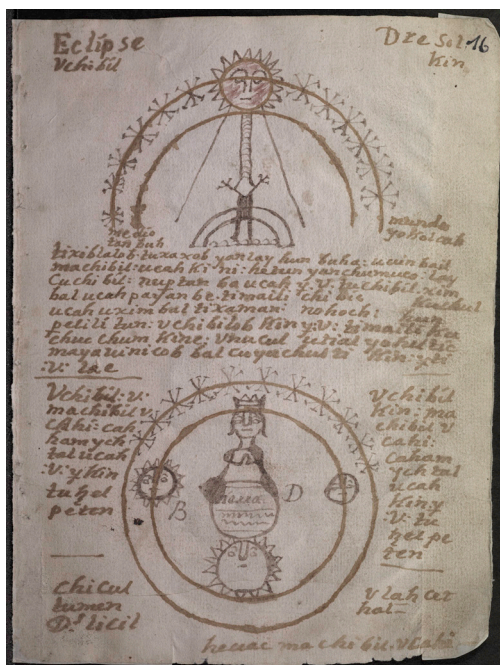 Eclipse
Vchibil
Dze Sol 16
Kin
medio
tan buh
mundo
yokolcab
tixiblalob: tuxaxob yanlay hun buha: ucuin bail
machibil: ucah Ki-ni: hetun yanchumuc: lay
Cuchibil: nuptan ba ucah y. V. tuchibil: xim
bal ucah payan be. timaili tchibic
ucah uximbal tixaman: nohoch: hun
pelili tun: Vchibilob Kin y. V: timaili ku
chuc chum Kine: Vnucul
maya uinicob bal cu Kin:
:V: lae
Vchibil: V.
machibil V
cahi: cah:
hamych
tal ucah
:V: y Kin
tu hel
peten
Vchibil
Kin: ma
chibil V
cahi:
caham
ych tal
ucah
Kin y
V: tu
hel pe
ten
B
D
chicul
tumen
Ds. licil
V lah cet
hol-
heuac ma chibil. V cahi